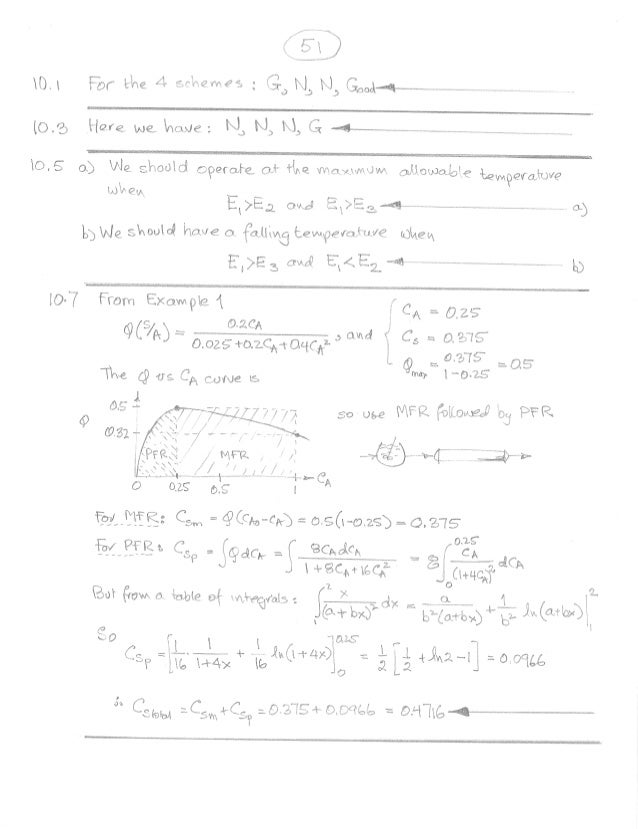 51
10.1 For the 4 schemes : G, N, N, Good
10.3 Here we have : N, N, N, G
10.5 a) We should operate at the maximum allowable temperature
when
E₁>E₂ and E₁>E₃ a)
b) We should have a falling temperature when
E₁>E₃ and E₁<E₂ b)
10.7 From Example 1
φ(S/A) = 0.2CA / 0.025 + 0.2CA + 0.4CA² , and { CA = 0.25
Cs = 0.375
φmax = 0.375 / 1-0.25 = 0.5
The φ vs CA curve is
so use MFR followed by PFR
φ
0.5
0.32
PFR MFR
0 0.25 0.5 1 CA
For MFR: Csm = φ(CA0-CA) = 0.5(1-0.25) = 0.375
For PFR: Csp = ∫φdCA = ∫ 8CAdCA / 1+8CA+16CA² = 8∫₀^0.25 CA / (1+4CA)² dCA
But from a table of integrals : ∫₁² x / (a+bx)² dx = a / b²(a+bx) + 1/b² ln(a+bx)|₁²
So
Csp = [1/16 · 1/1+4x + 1/16 ln(1+4x)]₀^0.25 = 1/2 [1/2 + ln2 -1] = 0.0966
∴ Cstotal = Csm + Csp = 0.375 + 0.0966 = 0.4716